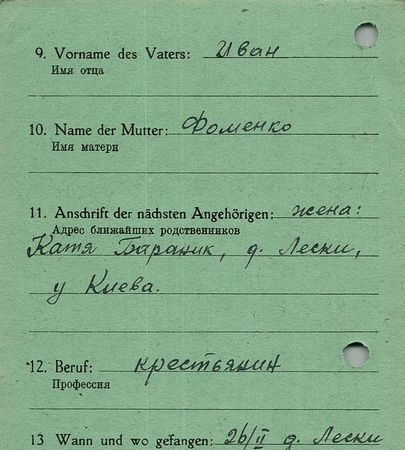 9. Vorname des Vaters: Иван
Имя отца
10. Name der Mutter: Фоменко
Имя матери
11. Anschrift der nächsten Angehörigen: жена:
Адрес ближайших родственников
Катя Бараник, д. Лески,
у Киева.
12. Beruf: крестьянин
Профессия
13 Wann und wo gefangen: 26/II д. Лески